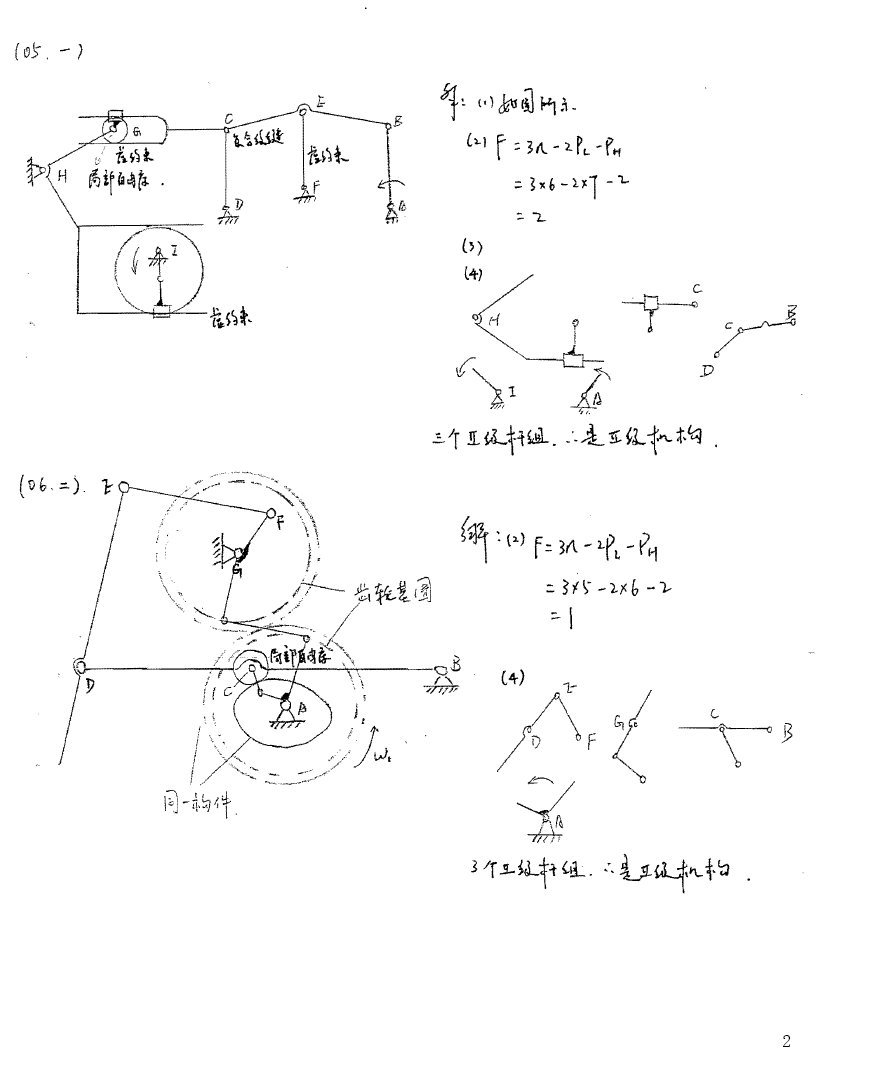 (05.一)
G
虚约束
局部自由度.
H
C
复合铰链
E
虚约束
B
D
F
A
I
虚约束
解: (1) 如图所示.
(2) F = 3n - 2PL - PH
= 3×6 - 2×7 - 2
= 2
(3)
(4)
H
C
C
B
D
I
A
三个Ⅱ级杆组. ∴是Ⅱ级机构.
(06.二).
E
F
G
齿轮基圆
局部自由度
D
C
B
A
W1
同一构件.
解: (2) F = 3n - 2PL - PH
= 3×5 - 2×6 - 2
= 1
(4)
E
D
F
G
C
B
A
3个Ⅱ级杆组. ∴是Ⅱ级机构.
2